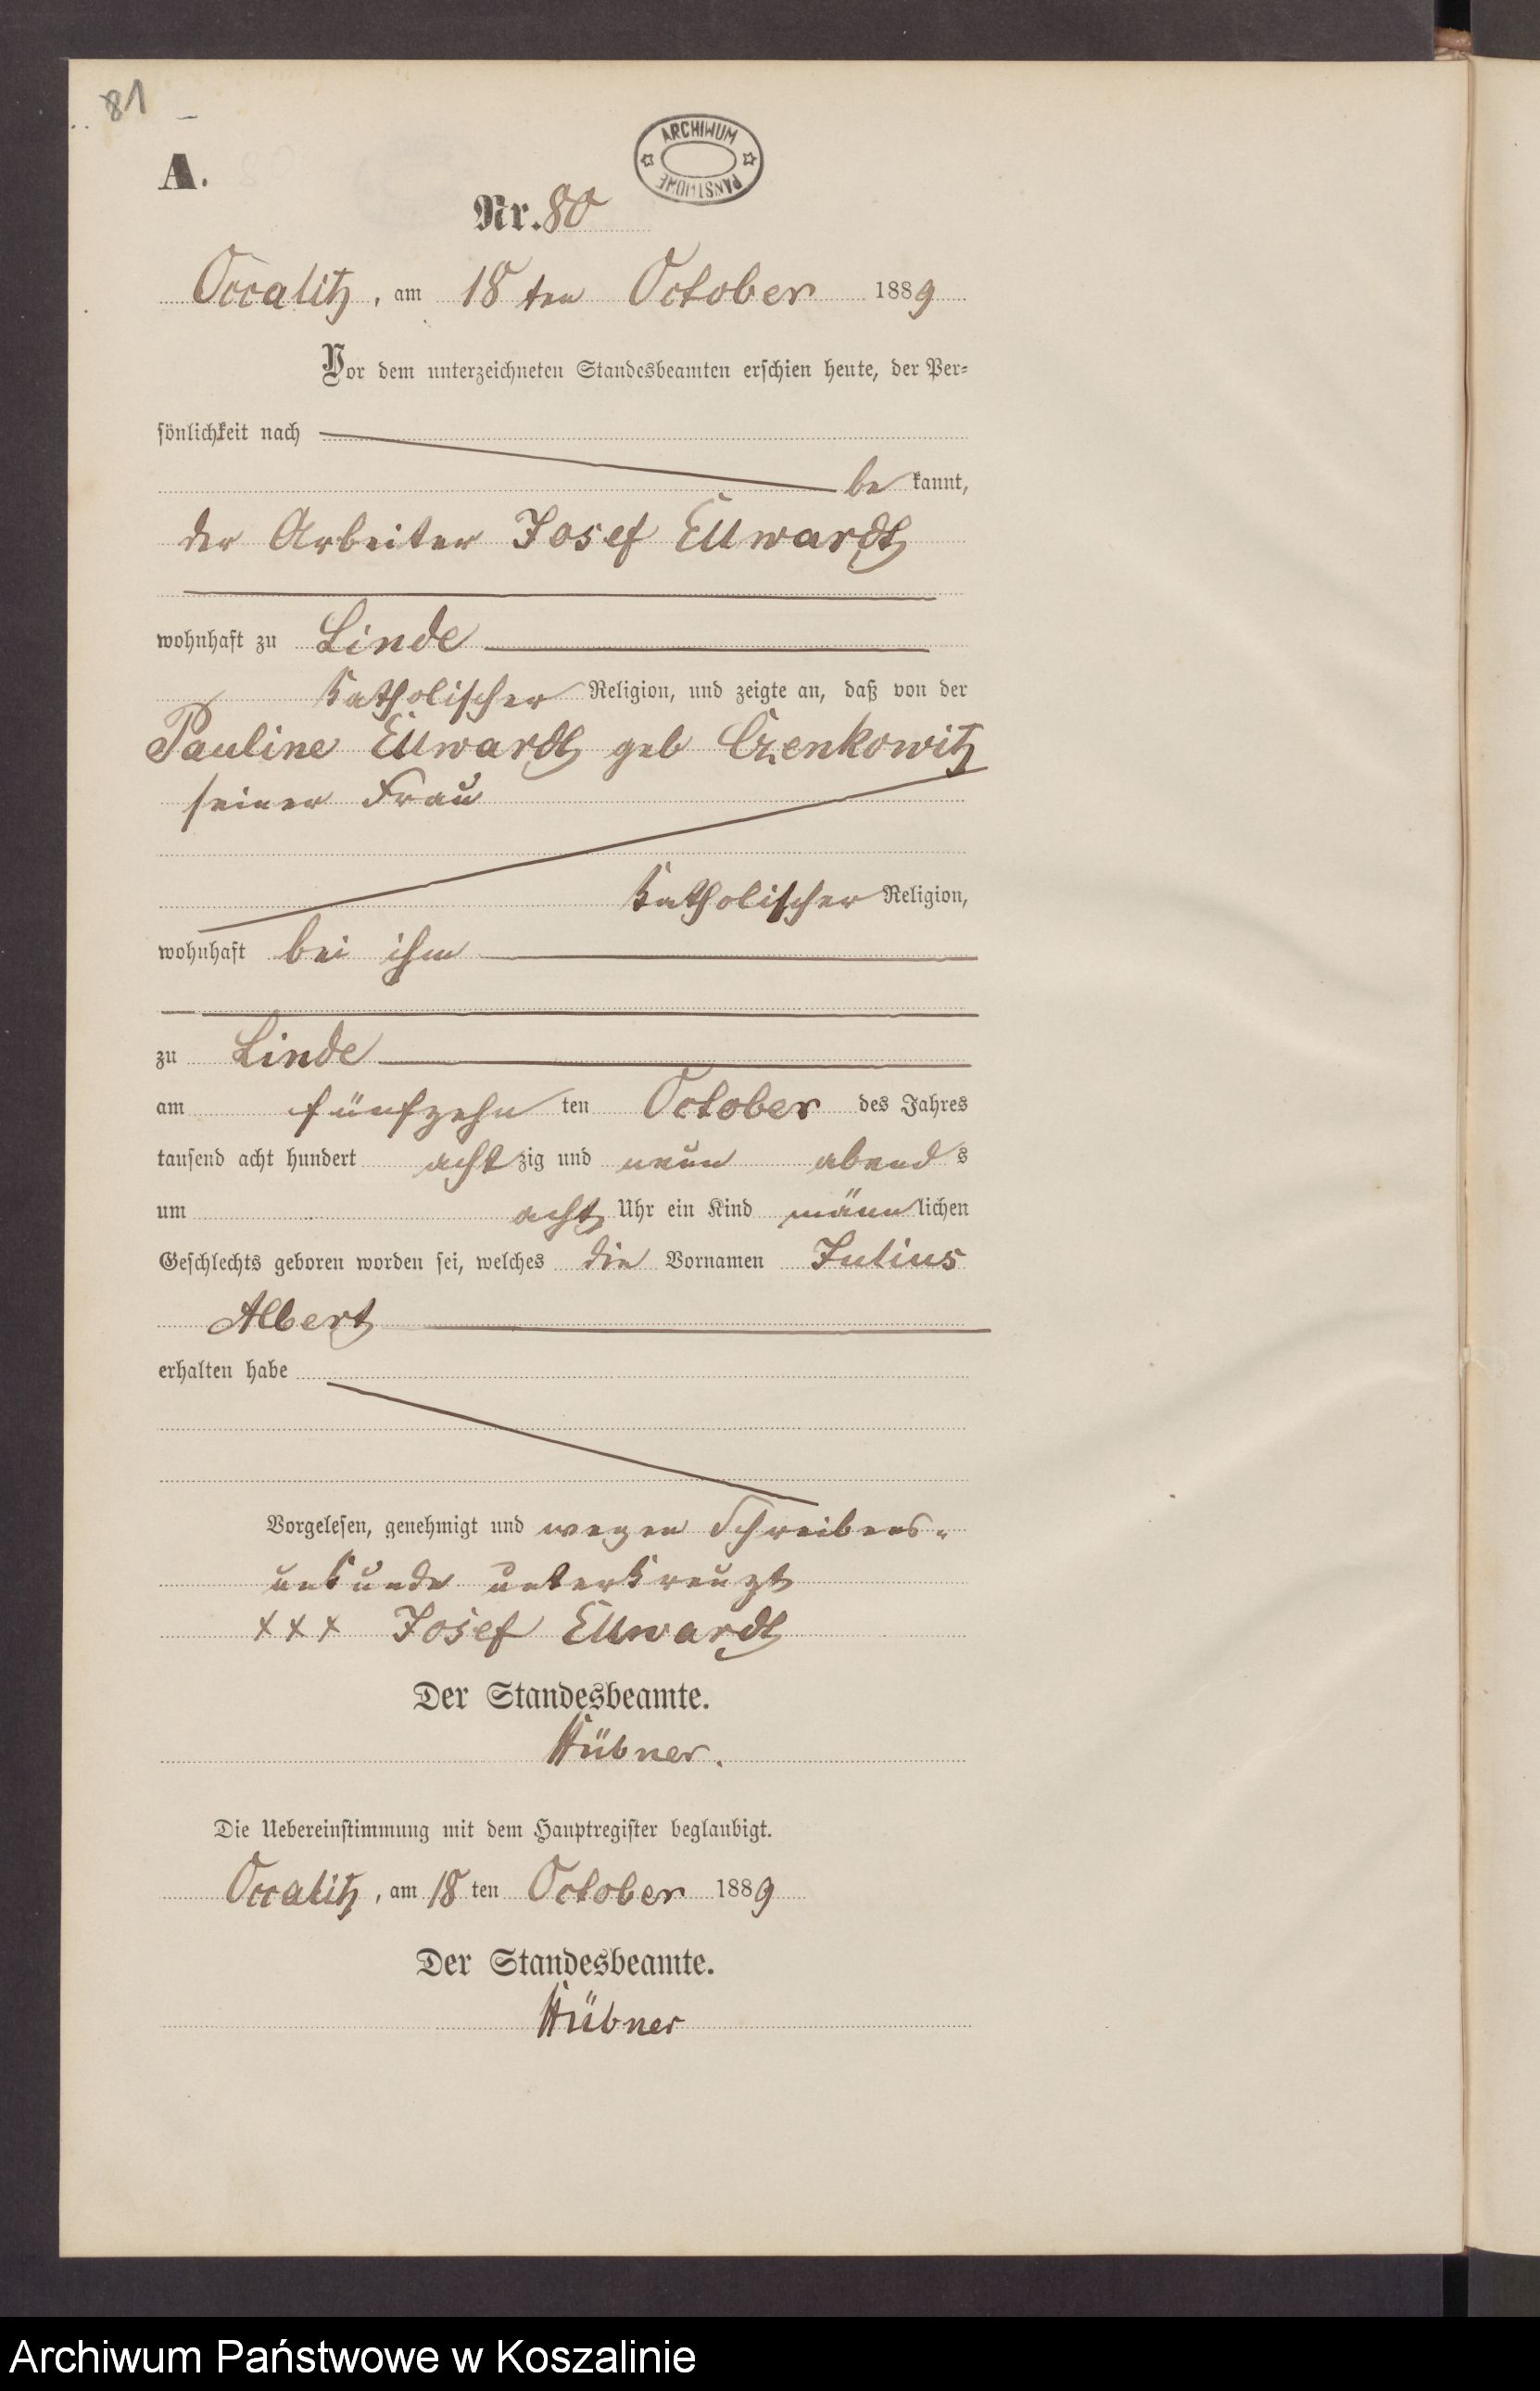 81
A.
ARCHIWUM
PAŃSTWOWE
Nr. 80
Occalitz, am 18 ten October 1889
Vor dem unterzeichneten Standesbeamten erschien heute, der Per-
sönlichkeit nach
be kannt,
der Arbeiter Josef Ellwardt
wohnhaft zu Linde
katholischer Religion, und zeigte an, daß von der
Pauline Ellwardt geb Czenkowitz
seiner Frau
katholischer Religion,
wohnhaft bei ihm
zu Linde
am fünfzehn ten October des Jahres
tausend acht hundert acht zig und neun abend s
um acht Uhr ein Kind männ lichen
Geschlechts geboren worden sei, welches die Vornamen Julius
Albert
erhalten habe
Vorgelesen, genehmigt und wegen Schreibens-
unkunde unterkreuzt
xxx Josef Ellwardt
Der Standesbeamte.
Hübner.
Die Uebereinstimmung mit dem Hauptregister beglaubigt.
Occalitz, am 18 ten October 1889
Der Standesbeamte.
Hübner
Archiwum Państwowe w Koszalinie